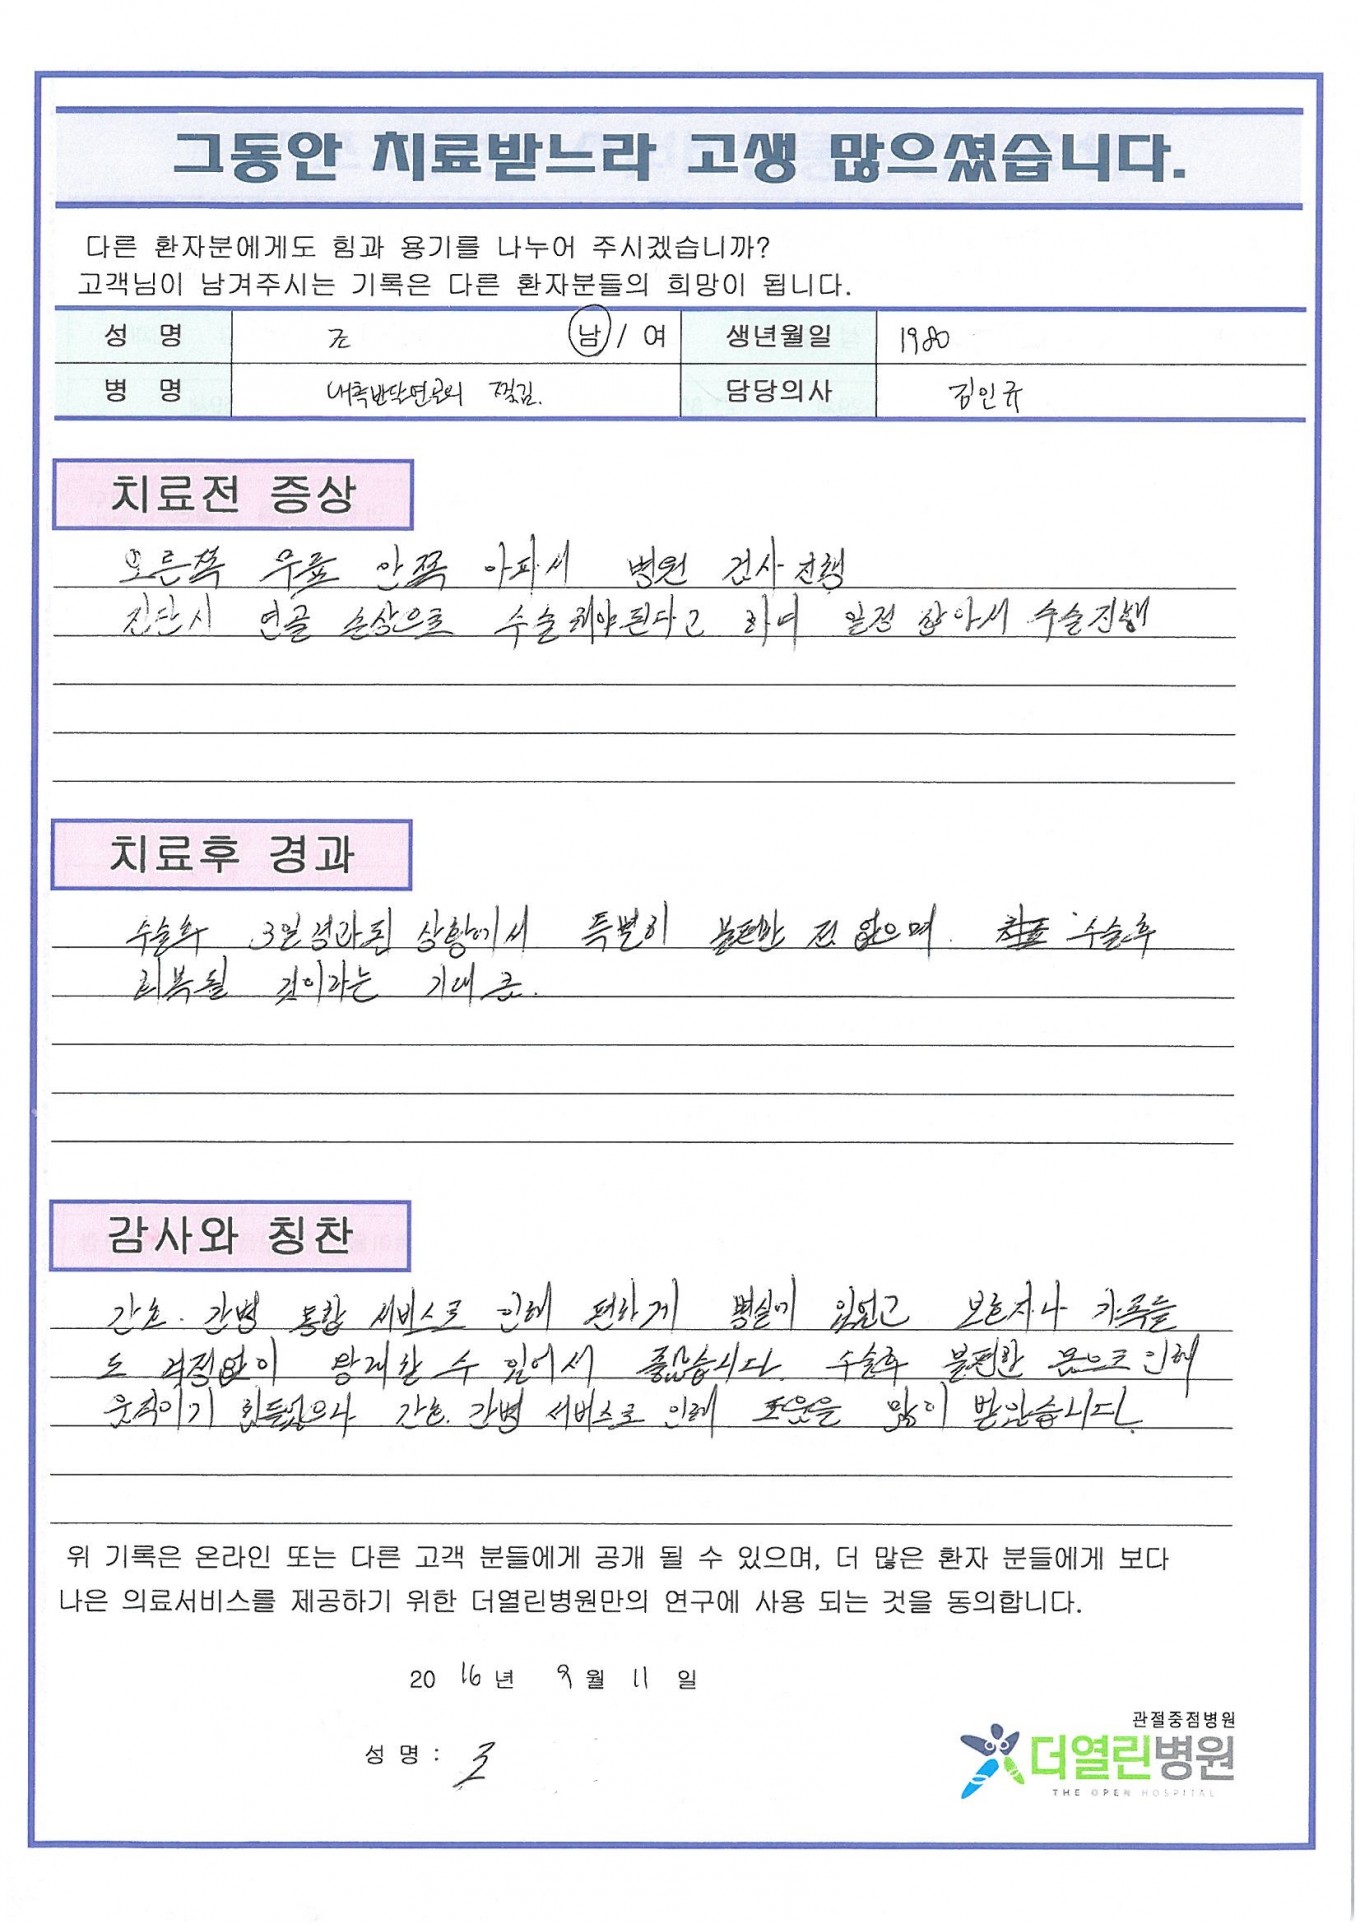 그동안 치료받느라 고생 많으셨습니다.
다른 환자분에게도 힘과 용기를 나누어 주시겠습니까?
고객님이 남겨주시는 기록은 다른 환자분들의 희망이 됩니다.
성 명 조 남 / 여 생년월일 1980
병 명 내측반달연골의 찢김. 담당의사 김인규
치료전 증상
오른쪽 무릎 안쪽 아파서 병원 검사 진행
진단시 연골 손상으로 수술해야된다고 하여 일정 잡아서 수술진행
치료후 경과
수술후 3일경과된 상황에서 특별히 불편한 점 없으며 수술후
회복될 것이라는 기대 큼.
감사와 칭찬
간호. 간병 통합 서비스로 인해 편하게 병실에 있었고 보호자나 가족들
도 걱정없이 왕래할 수 있어서 좋았습니다. 수술후 불편한 몸으로 인해
움직이기 힘들었으나 간호. 간병 서비스로 인해 도움을 많이 받았습니다.
위 기록은 온라인 또는 다른 고객 분들에게 공개 될 수 있으며, 더 많은 환자 분들에게 보다
나은 의료서비스를 제공하기 위한 더열린병원만의 연구에 사용 되는 것을 동의합니다.
2016년 9월 11일
성 명 : 조
관절중점병원
더열린병원
THE OPEN HOSPITAL